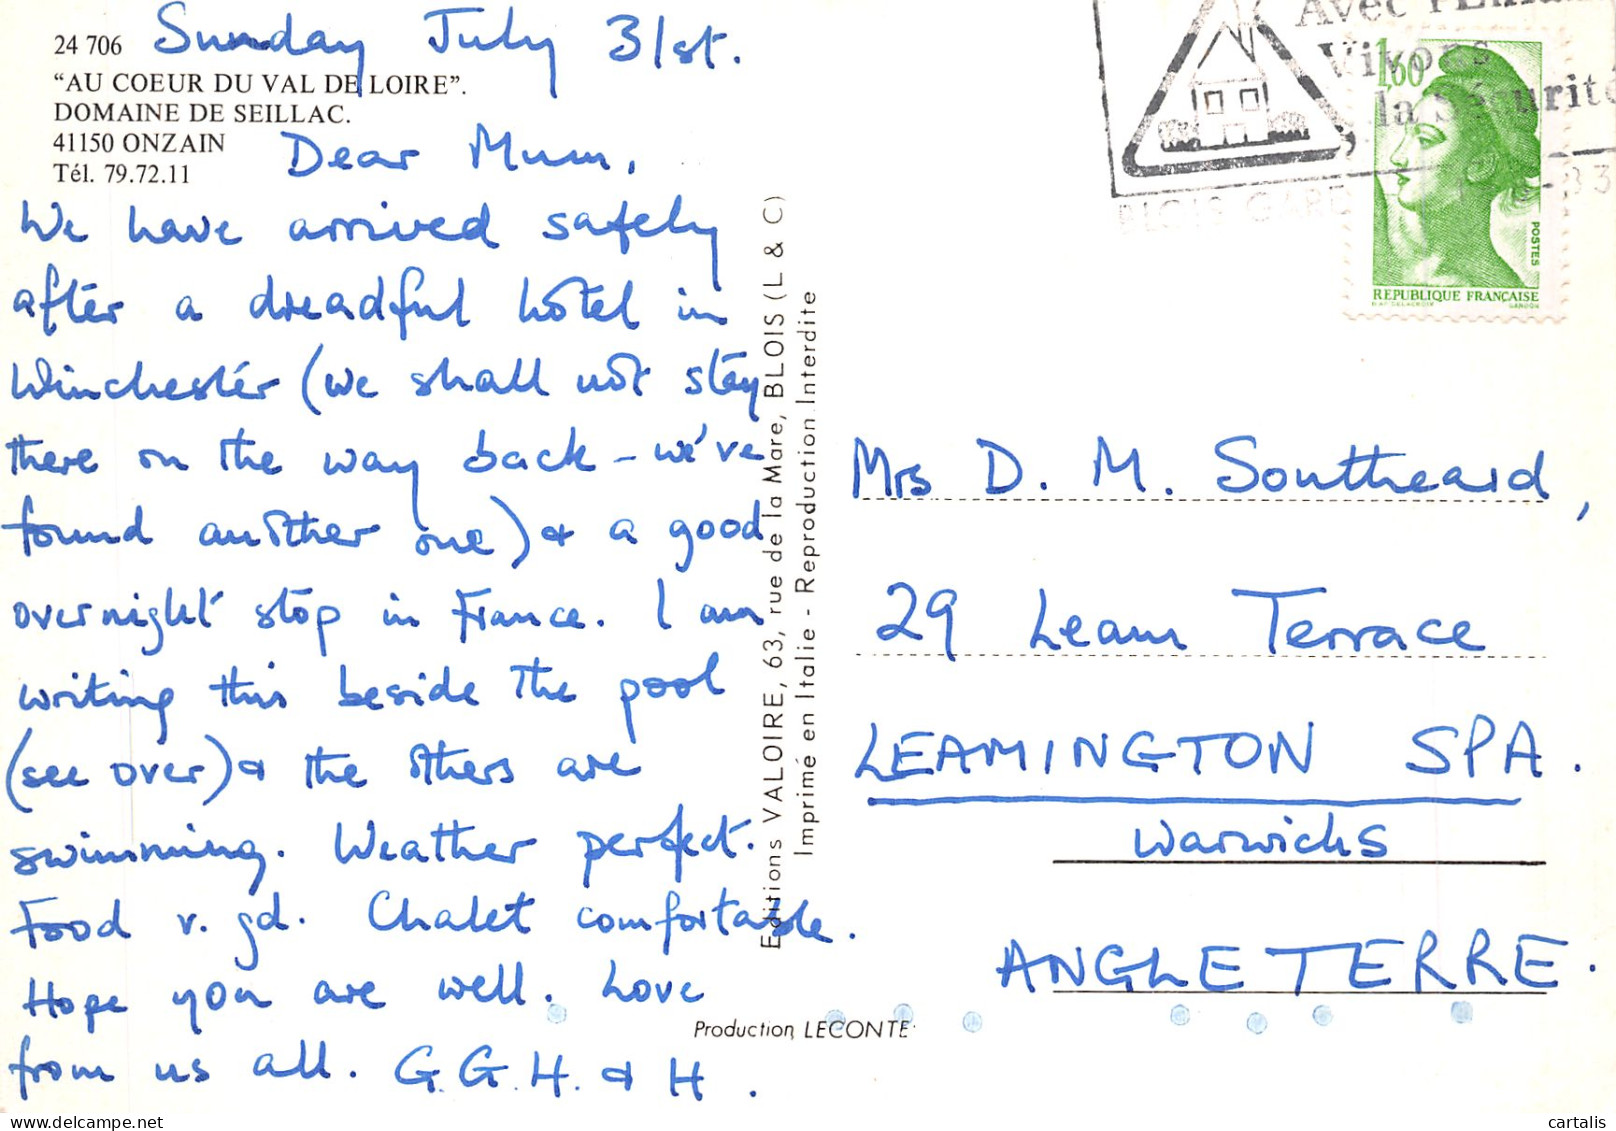 24 706
Sunday July 31st.
"AU COEUR DU VAL DE LOIRE".
DOMAINE DE SEILLAC.
41150 ONZAIN
Tél. 79.72.11
Dear Mum,
We have arrived safely
after a dreadful hotel in
Winchester (we shall not stay
there on the way back - we've
found another one) & a good
overnight stop in France. I am
writing this beside the pool
(see over) & the others are
swimming. Weather perfect.
Food v. gd. Chalet comfortable.
Hope you are well. Love
from us all. G. G. H. & H.
Editions VALOIRE, 63, rue de la Mare, BLOIS (L & C)
Imprimé en Italie - Reproduction Interdite
Production LECONTE
Avec
Vivons
la Sécurité
BLOIS GARE
1,60
POSTES
REPUBLIQUE FRANÇAISE
GANDON
Mrs D. M. Southeard,
29 Leam Terrace
LEAMINGTON SPA.
Warwicks
ANGLETERRE.
cartalis